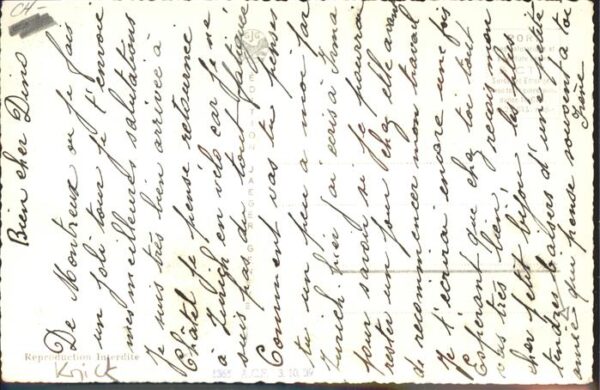 Bien cher Dinis
De Montreux où je fais
un joli tour je t'envoie
mes meilleures salutations
Je suis très bien arrivée à
Châtel je pense retourner
à Zürich en vélo car je ne
suis pas du tout fatiguée
Comment vas tu penses
tu un peu à moi far
Zurich. hier j'ai écris à Irma
pour savoir si je pourrai
rester un peu chez elle avant
de recommencer mon travail
Je t'écrirai encore une fois
Espérant que chez toi tout
vas très bien, reçois mon
cher petit bijou les plus
tendre baisers d'une petite
amie qui pense souvent à toi
Irène
Reproduction Interdite